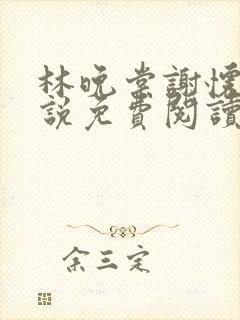 林晚棠謝懷
說免費閱讀
余三定